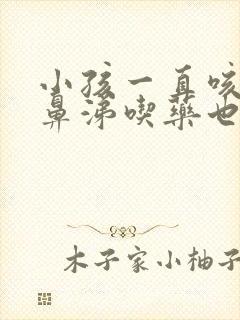 小孩一直咳
鼻涕喫藥也
木子家小柚子